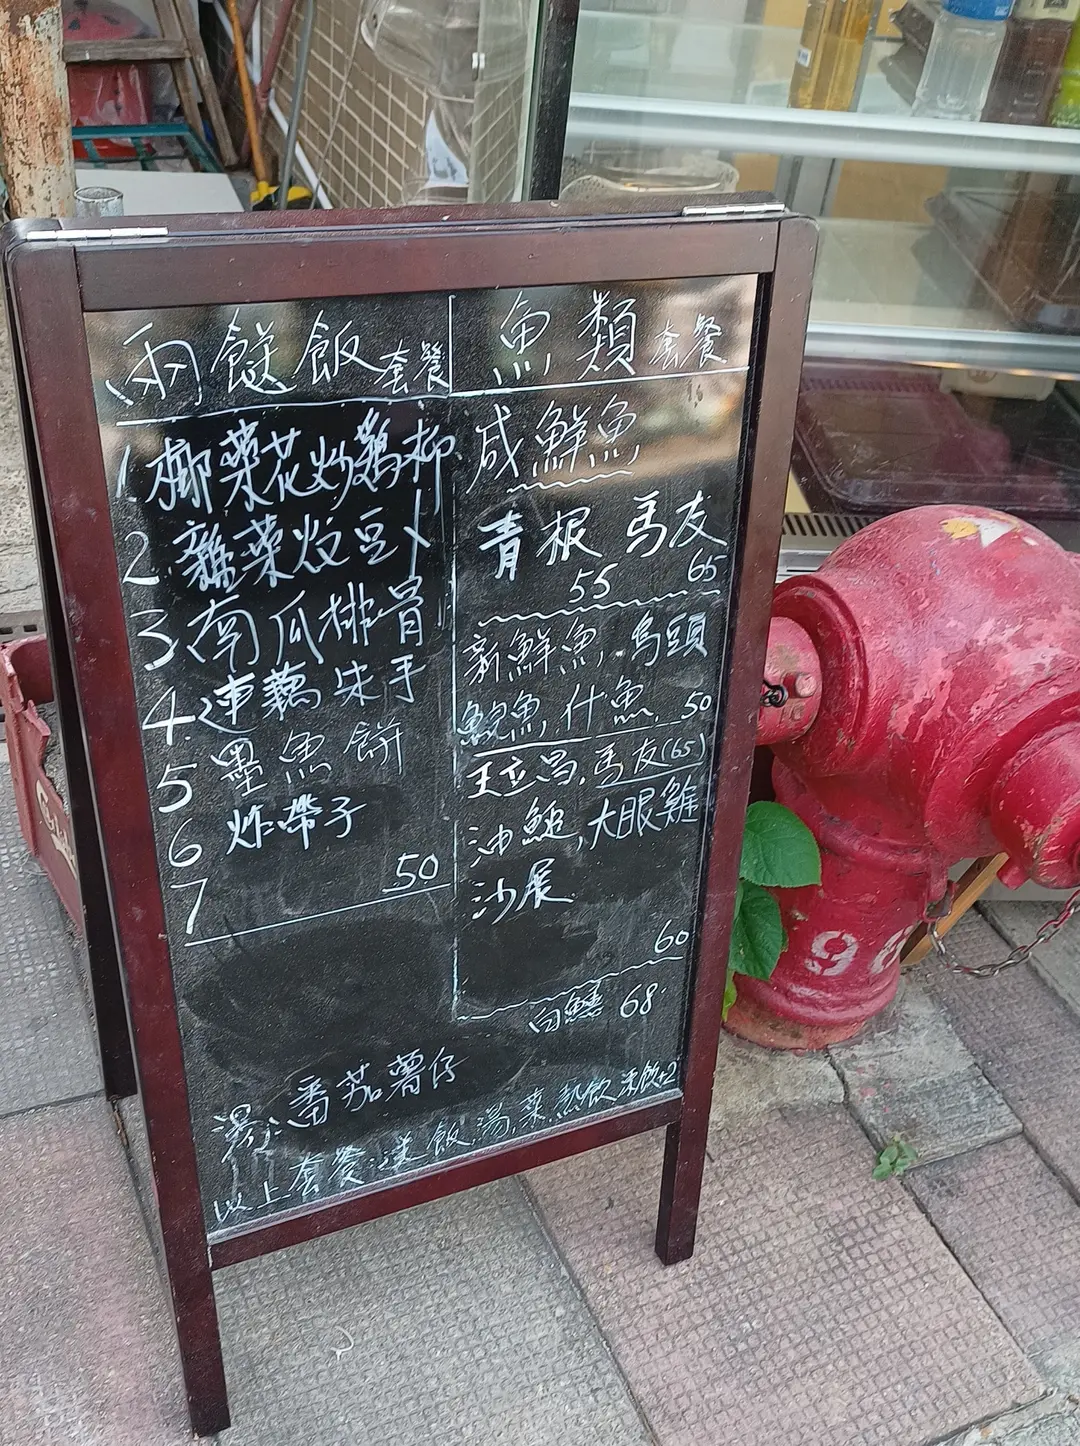 兩餸飯套餐
1 椰菜花炒鵪柳
2 雜菜炆豆卜
3 南瓜排骨
4 連藕朱手
5 墨魚餅
6 炸帶子
7
50
魚類套餐
咸鮮魚
青根 馬友
55 65
新鮮魚 烏頭
鯇魚, 什魚 50
王立昌, 馬友(65)
沖鰽, 大眼雞
沙展
60
白鱔 68
湯: 番茄薯仔
以上套餐送飯,湯,菜,熱飲 凍飲+2
98